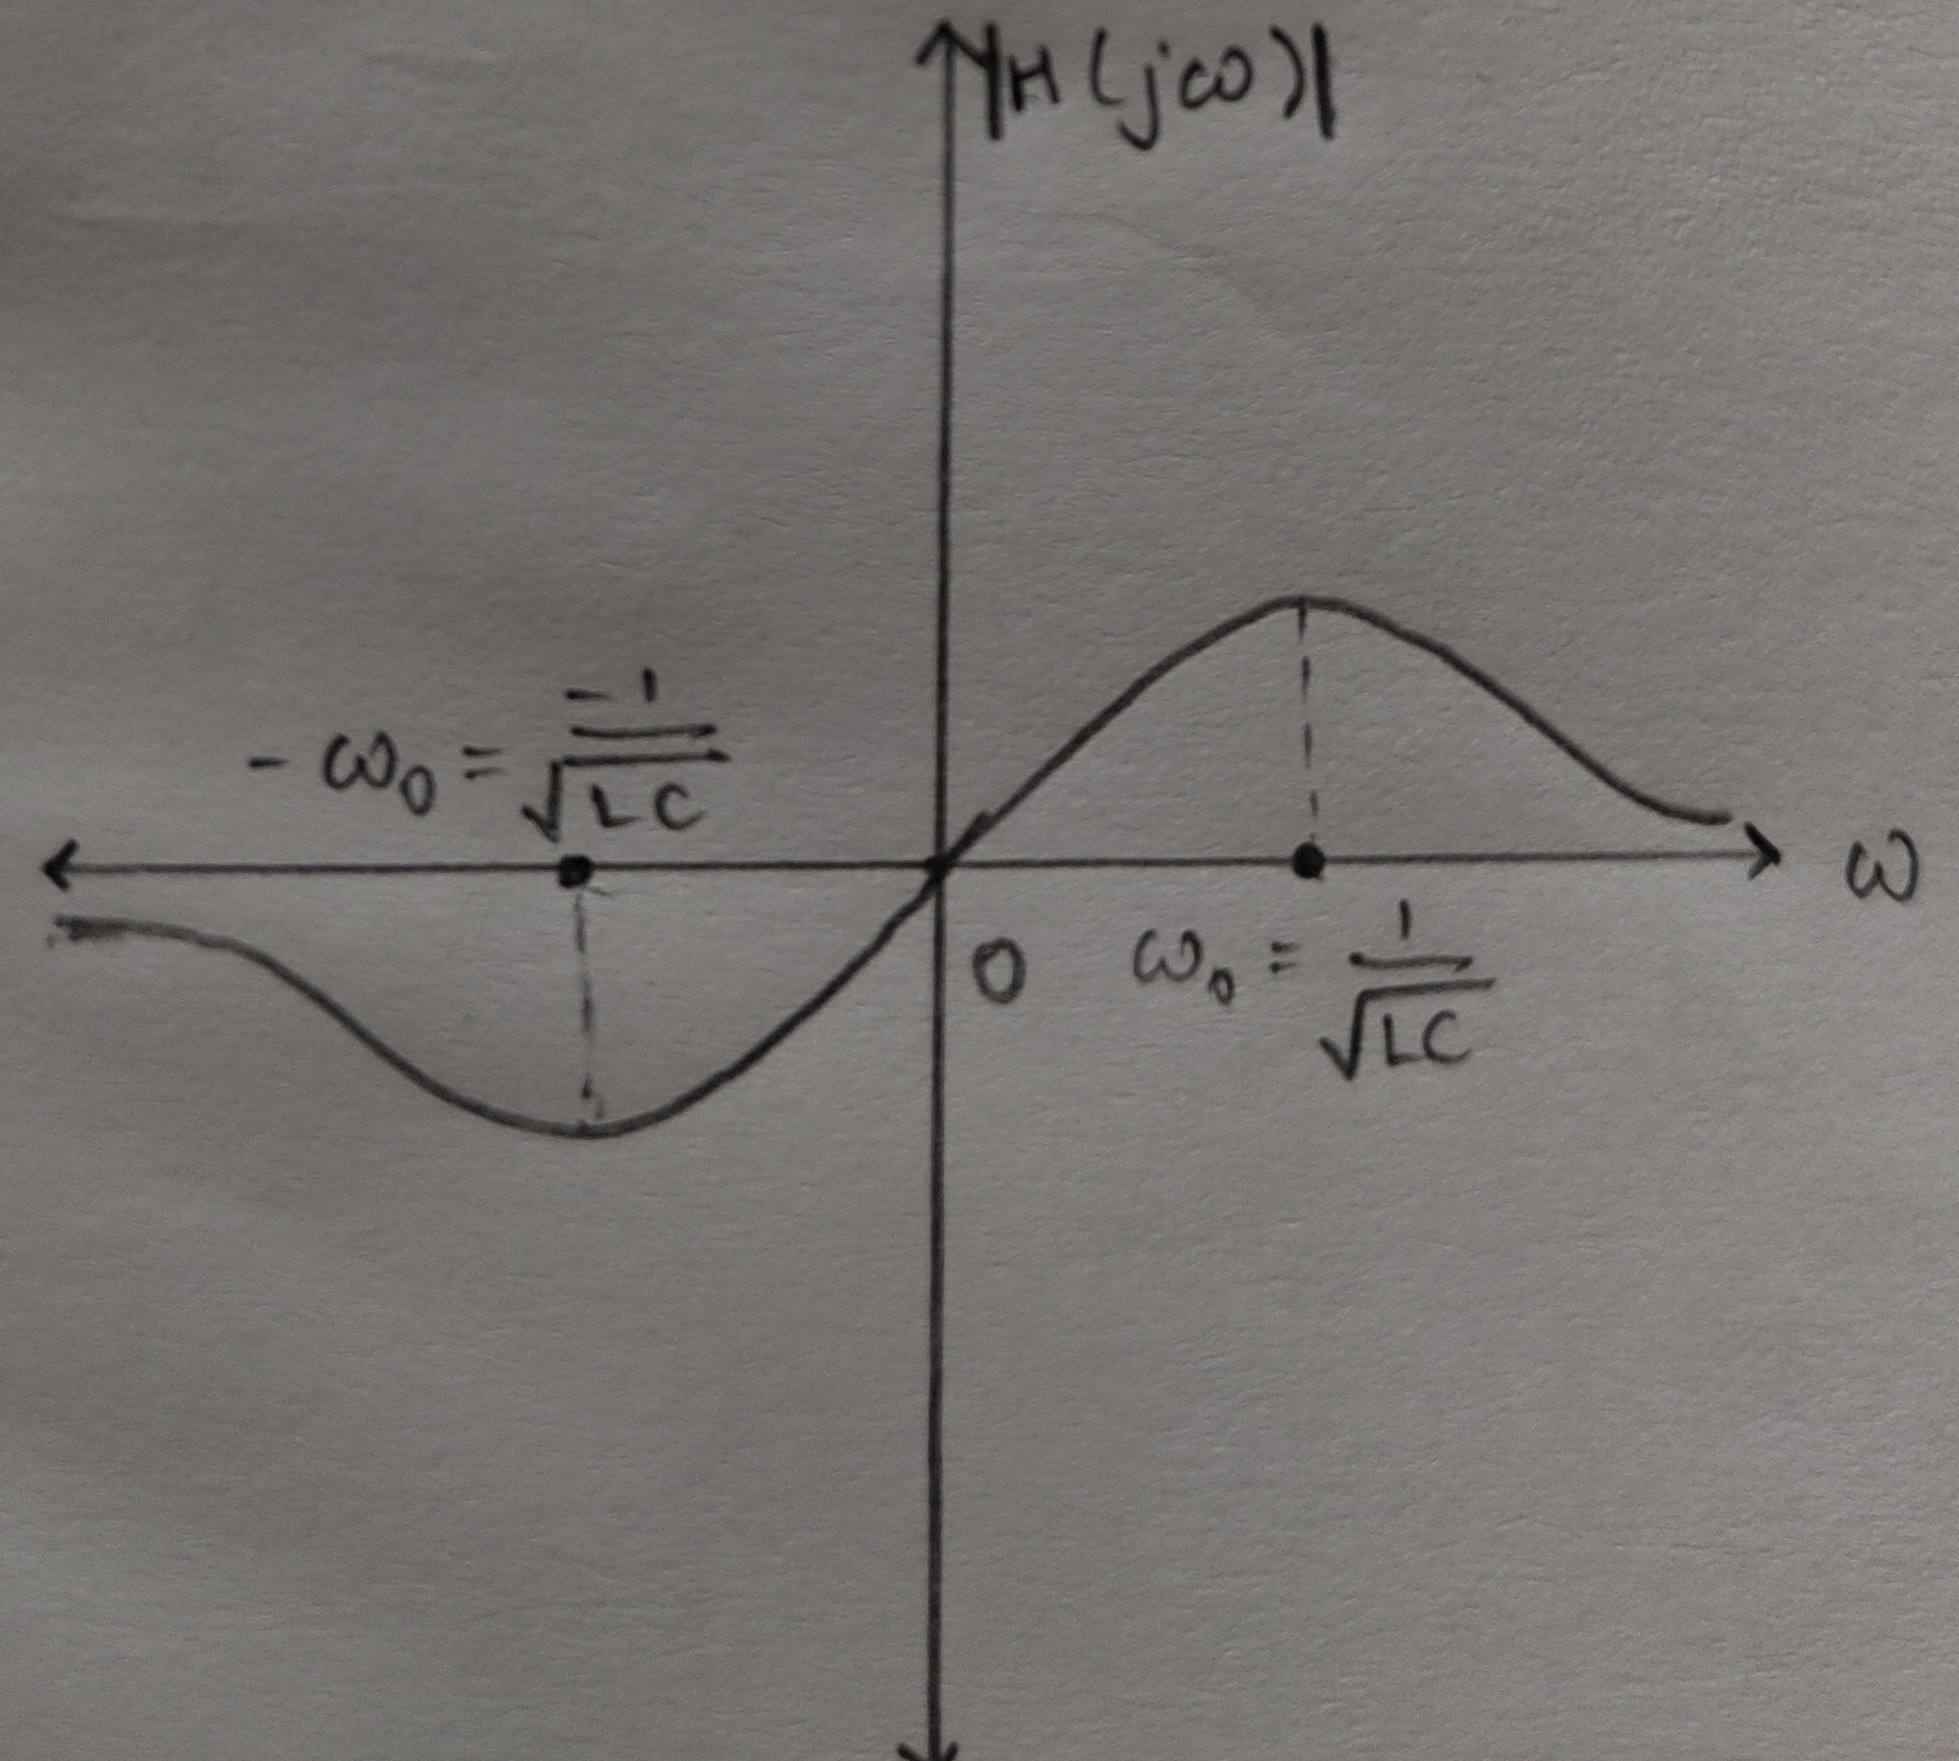 |H(jω)|
-ω₀ = -1/√LC
ω
0
ω₀ = 1/√LC